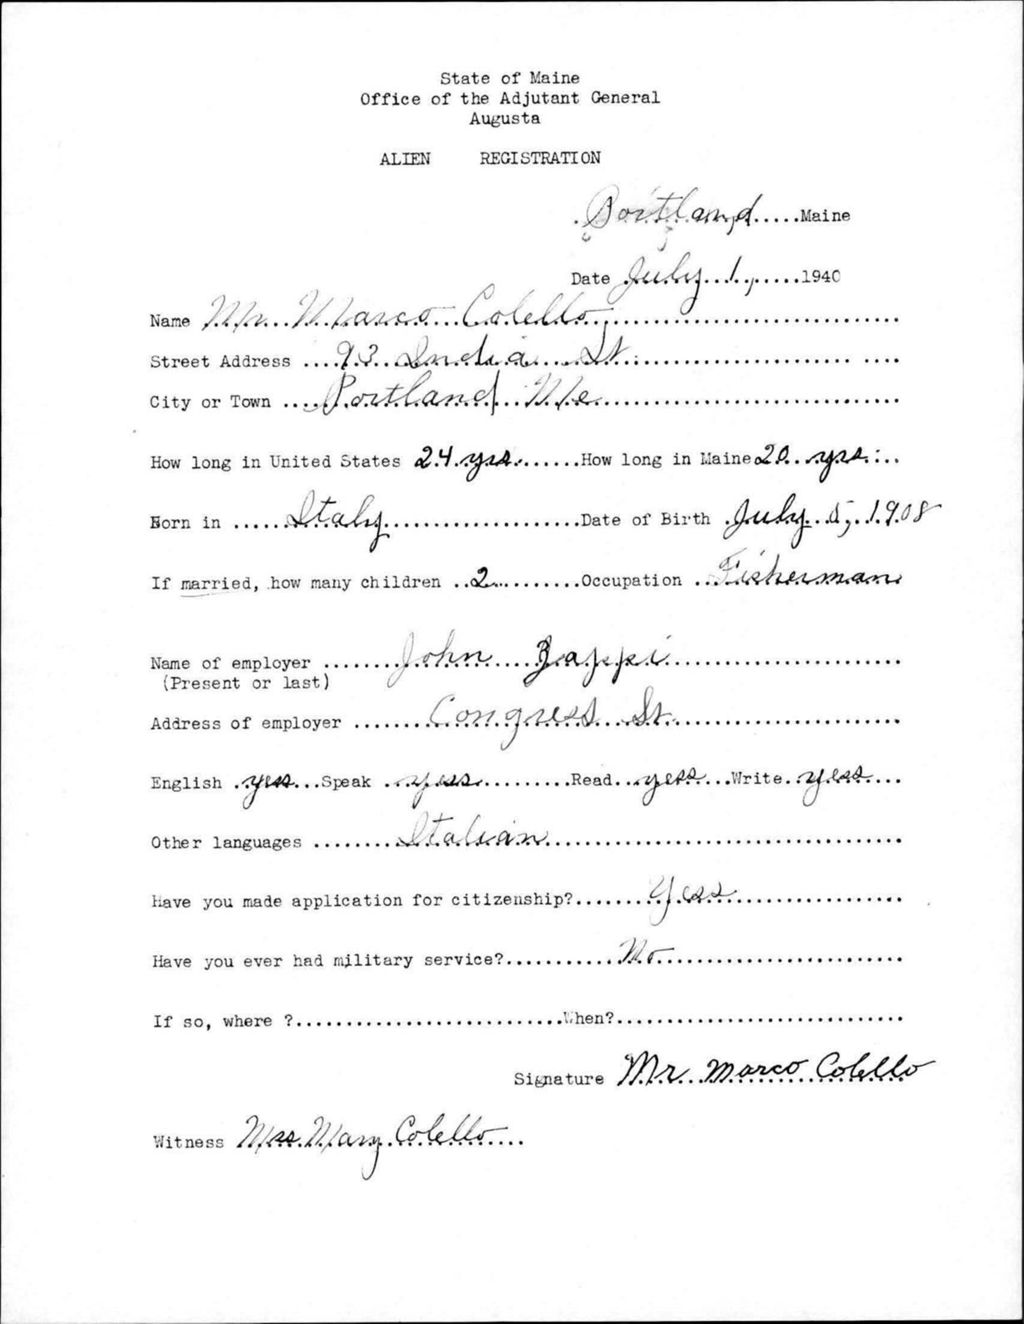 State of Maine
Office of the Adjutant General
Augusta
ALIEN REGISTRATION
Portland.....Maine
Date July 1,.....1940
Name Mr. Marco Colello
Street Address 93 India St.
City or Town Portland Me
How long in United States 24 yrs. How long in Maine 20 yrs.
Born in Italy Date of Birth July 5, 1908
If married, how many children 2 Occupation Fisherman
Name of employer John Zappi
(Present or last)
Address of employer Congress St.
English yes Speak yes Read yes Write yes
Other languages Italian
Have you made application for citizenship? Yes
Have you ever had military service? No
If so, where ? When?
Signature Mr. Marco Colello
Witness Mrs. Mary Colello